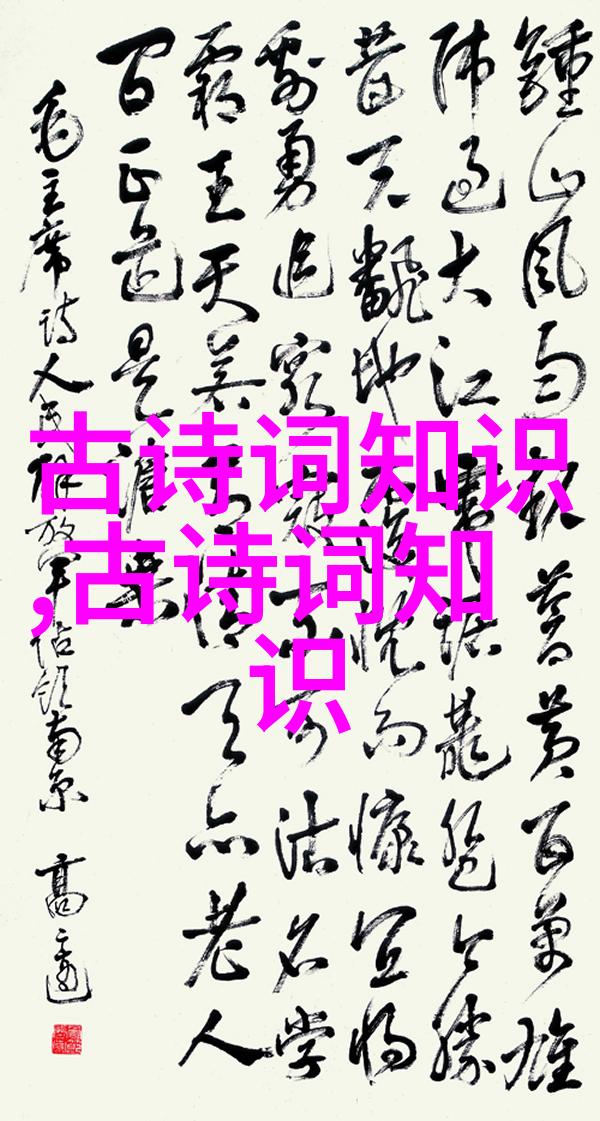 鍾山风雨起蒼黄百萬雄
师过大江虎踞龍盘今勝
昔天翻地覆慨而慷宜将
剩勇追窮寇不可沽名学
霸王天若有情天亦老人
间正道是滄桑
毛主席诗人民解放军占领南京 高
古诗词知识
,古诗词知
识